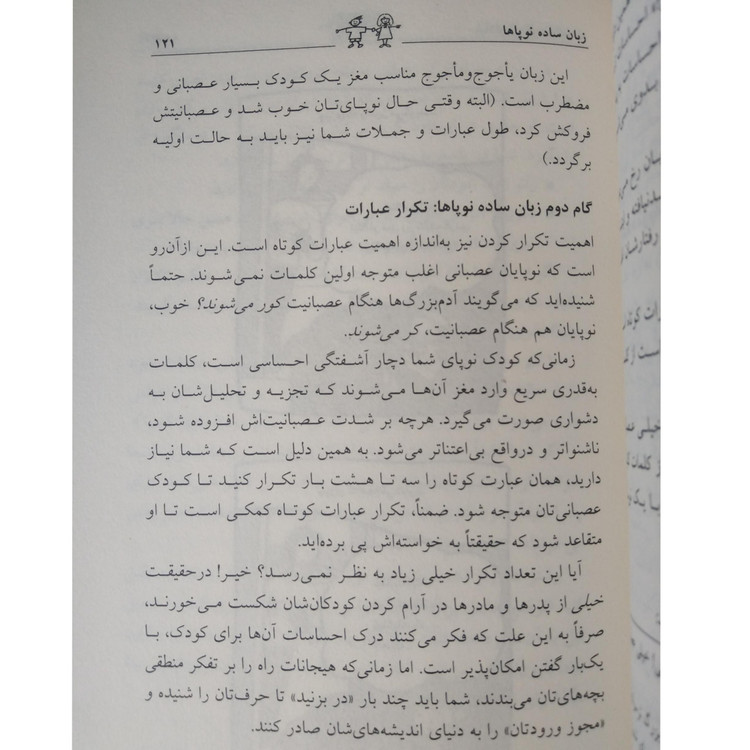 زبان ساده نوپاها
۱۲۱
این زبان یأجوج‌ومأجوج مناسب مغز یک کودک بسیار عصبانی و
مضطرب است. (البته وقتی حال نوپای‌تان خوب شد و عصبانیتش
فروکش کرد، طول عبارات و جملات شما نیز باید به حالت اولیه
برگردد.)
گام دوم زبان ساده نوپاها: تکرار عبارات
اهمیت تکرار کردن نیز به‌اندازه اهمیت عبارات کوتاه است. این ازآن‌رو
است که نوپایان عصبانی اغلب متوجه اولین کلمات نمی‌شوند. حتماً
شنیده‌اید که می‌گویند آدم‌بزرگ‌ها هنگام عصبانیت کور می‌شوند؟ خوب،
نوپایان هم هنگام عصبانیت، کر می‌شوند.
زمانی‌که کودک نوپای شما دچار آشفتگی احساسی است، کلمات
به‌قدری سریع وارد مغز آن‌ها می‌شوند که تجزیه و تحلیل‌شان به
دشواری صورت می‌گیرد. هرچه بر شدت عصبانیت‌اش افزوده شود،
ناشنواتر و درواقع بی‌اعتناتر می‌شود. به همین دلیل است که شما نیاز
دارید، همان عبارت کوتاه را سه تا هشت بار تکرار کنید تا کودک
عصبانی‌تان متوجه شود. ضمناً، تکرار عبارات کوتاه کمکی است تا او
متقاعد شود که حقیقتاً به خواسته‌اش پی برده‌اید.
آیا این تعداد تکرار خیلی زیاد به نظر نمی‌رسد؟ خیر! درحقیقت
خیلی از پدرها و مادرها در آرام کردن کودکان‌شان شکست می‌خورند،
صرفاً به این علت که فکر می‌کنند درک احساسات آن‌ها برای کودک، با
یک‌بار گفتن امکان‌پذیر است. اما زمانی‌که هیجانات راه را بر تفکر منطقی
بچه‌های‌تان می‌بندند، شما باید چند بار «در بزنید» تا حرف‌تان را شنیده و
«مجوز ورودتان» را به دنیای اندیشه‌های‌شان صادر کنند.